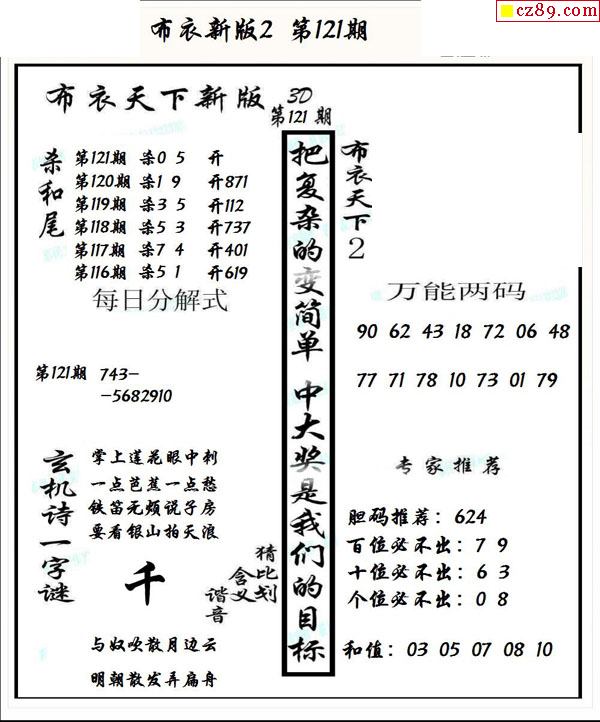 cz89.com
布衣新版2 第121期
布衣天下新版
3D
第121期
杀和尾
第121期 杀0 5 开
第120期 杀1 9 开871
第119期 杀3 5 开112
第118期 杀5 3 开737
第117期 杀7 4 开401
第116期 杀5 1 开619
每日分解式
第121期 743-
-5682910
玄机诗一字谜
掌上莲花眼中刺
一点芭蕉一点愁
铁笛无颊说子房
要看银山拍天浪
千
猜比划
含义
谐音
与奴吹散月边云
明朝散发弄扁舟
把复杂的变简单 中大奖是我们的目标
布衣天下2
万能两码
90 62 43 18 72 06 48
77 71 78 10 73 01 79
专家推荐
胆码推荐：624
百位必不出：7 9
十位必不出：6 3
个位必不出：0 8
和值：03 05 07 08 10